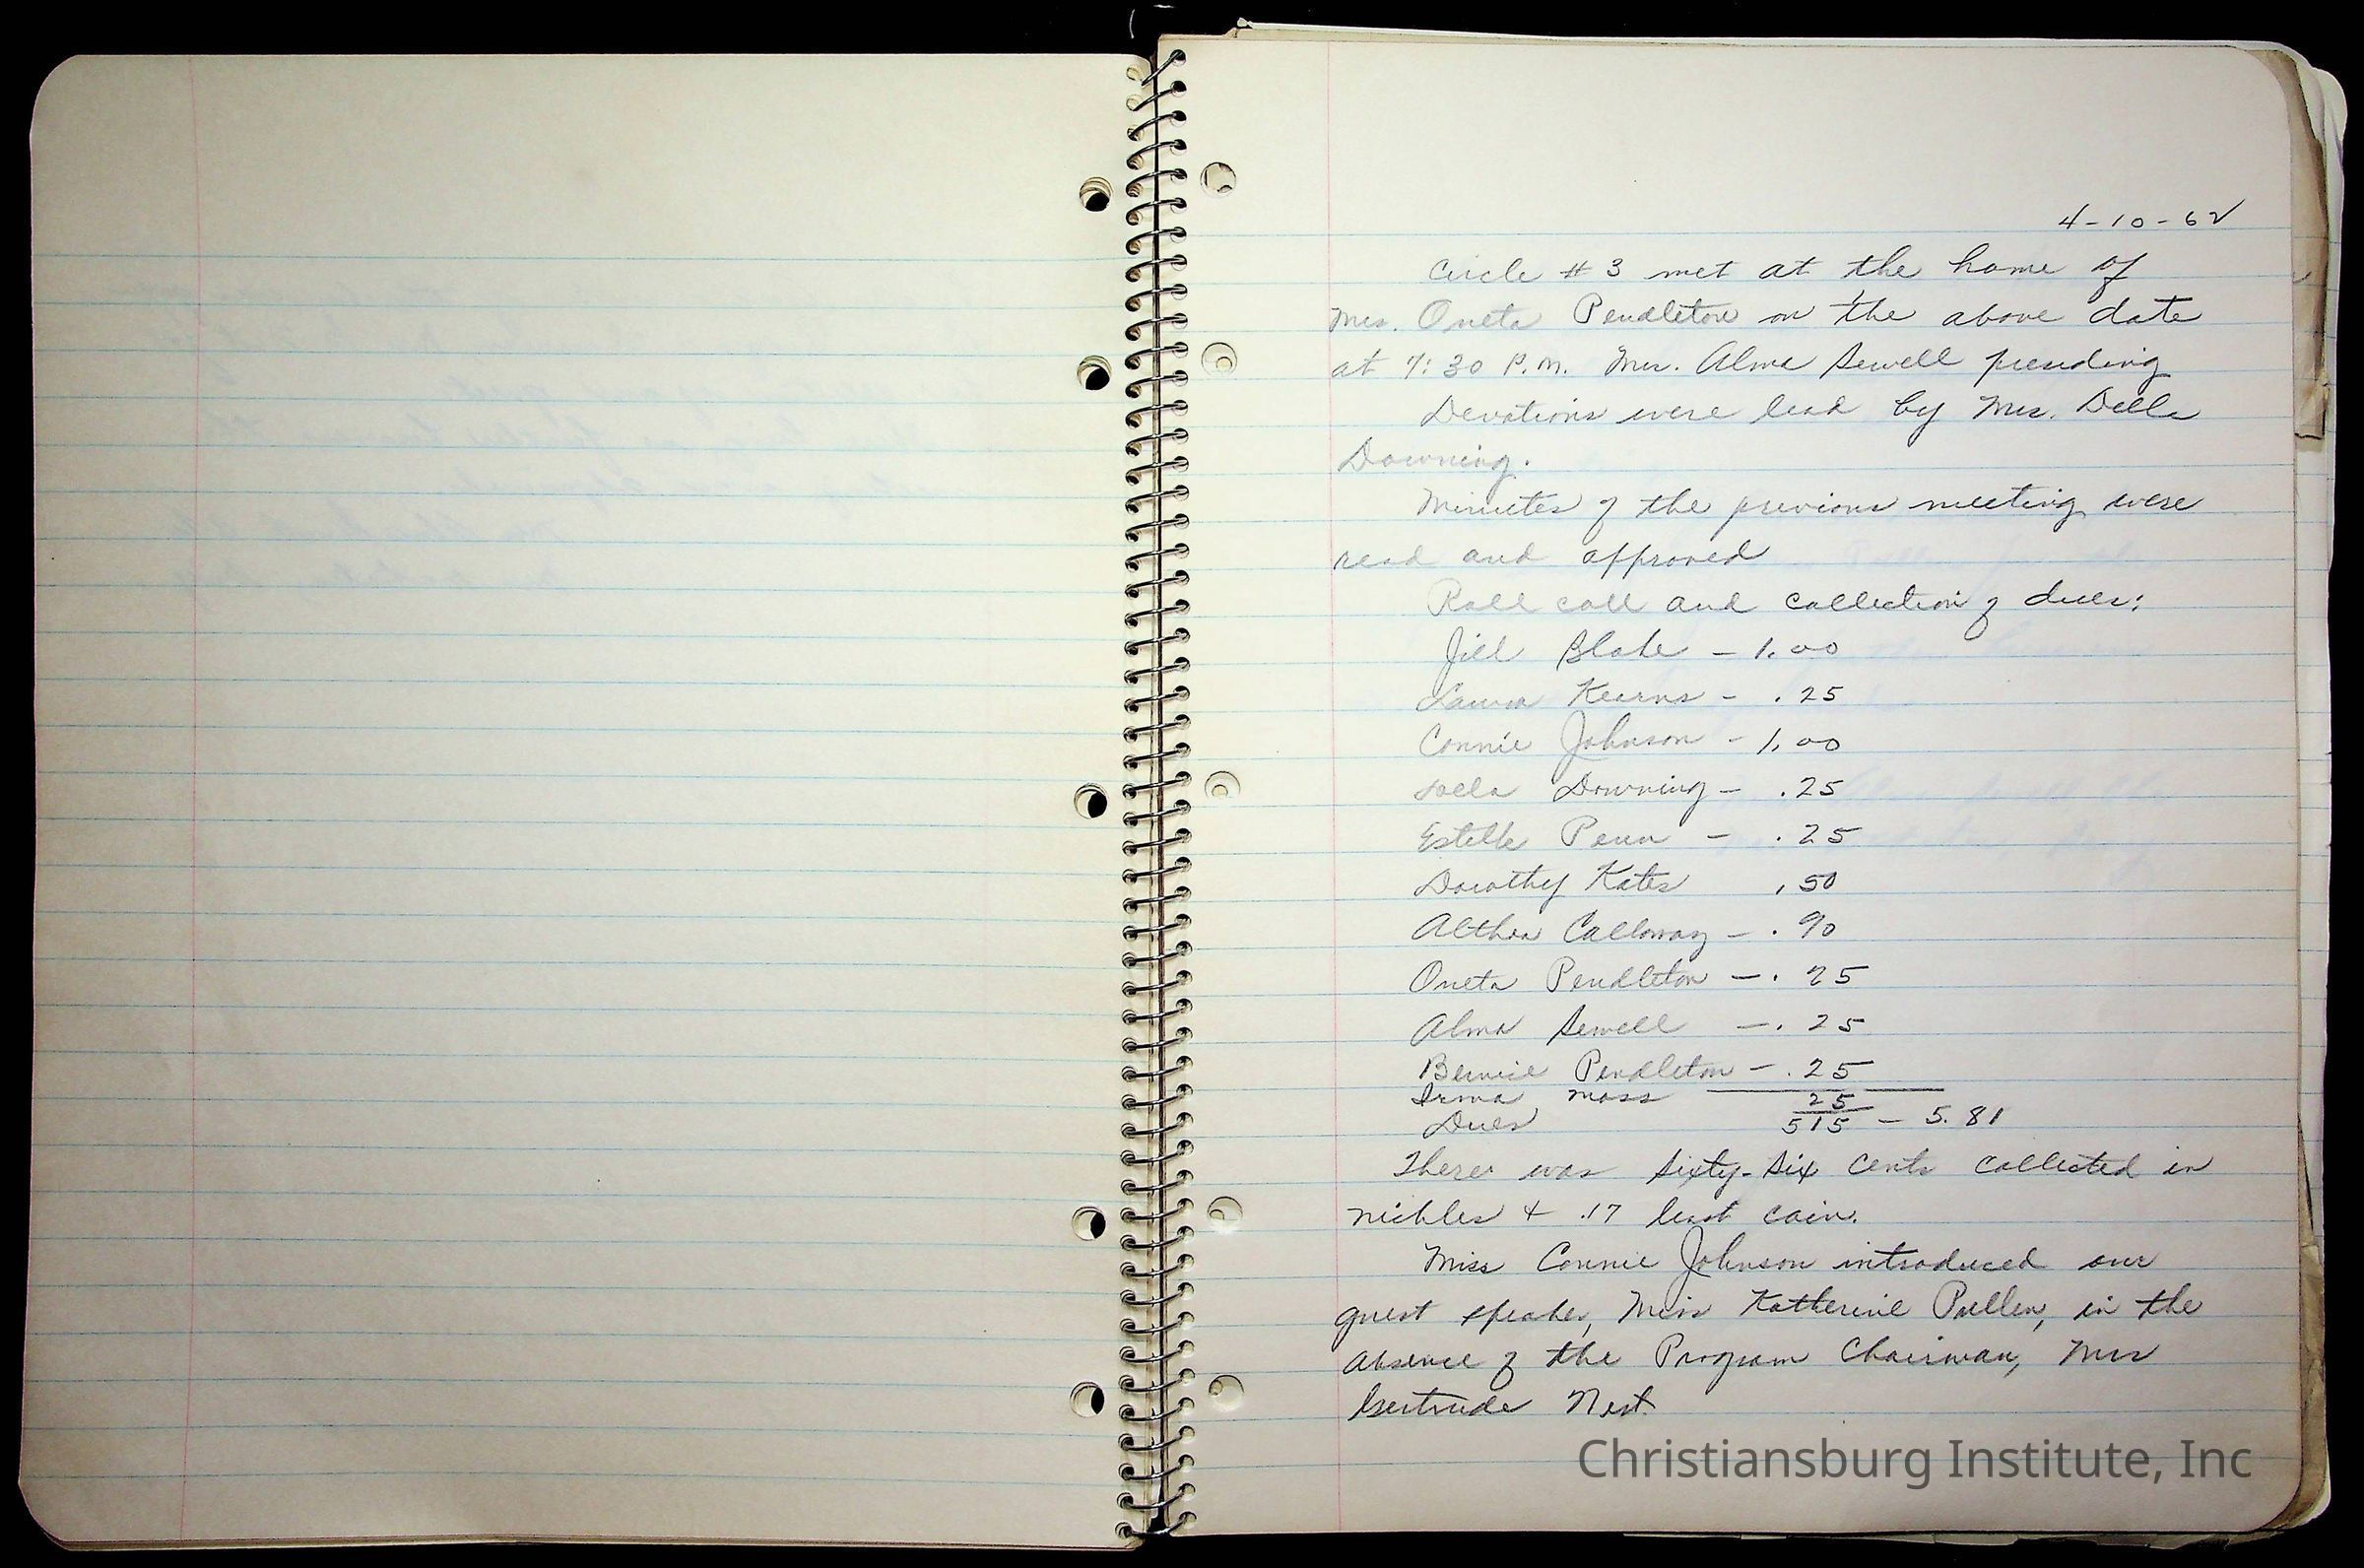 4-10-62
Circle # 3 met at the home of
Mrs. Oneta Pendleton on the above date
at 7:30 P.M. Mrs. Alma Sewell presiding
Devotions were lead by Mrs. Della
Downing.
Minutes of the previous meeting were
read and approved
Roll call and collection of dues:
Jill Blake - 1.00
Laura Kearns - .25
Connie Johnson - 1.00
Della Downing - .25
Estelle Penn - .25
Dorothy Kates .50
Althea Calloway - .90
Oneta Pendleton - . 25
Alma Sewell - . 25
Bernice Pendleton - .25
Irma Moss 25
Dues 515 - 5.81
There was sixty-six cents collected in
nickles + .17 least coin.
Miss Connie Johnson introduced our
guest speaker, Miss Katherine Pullen, in the
absence of the Program Chairman, Mrs
Gertrude Nest.
Christiansburg Institute, Inc